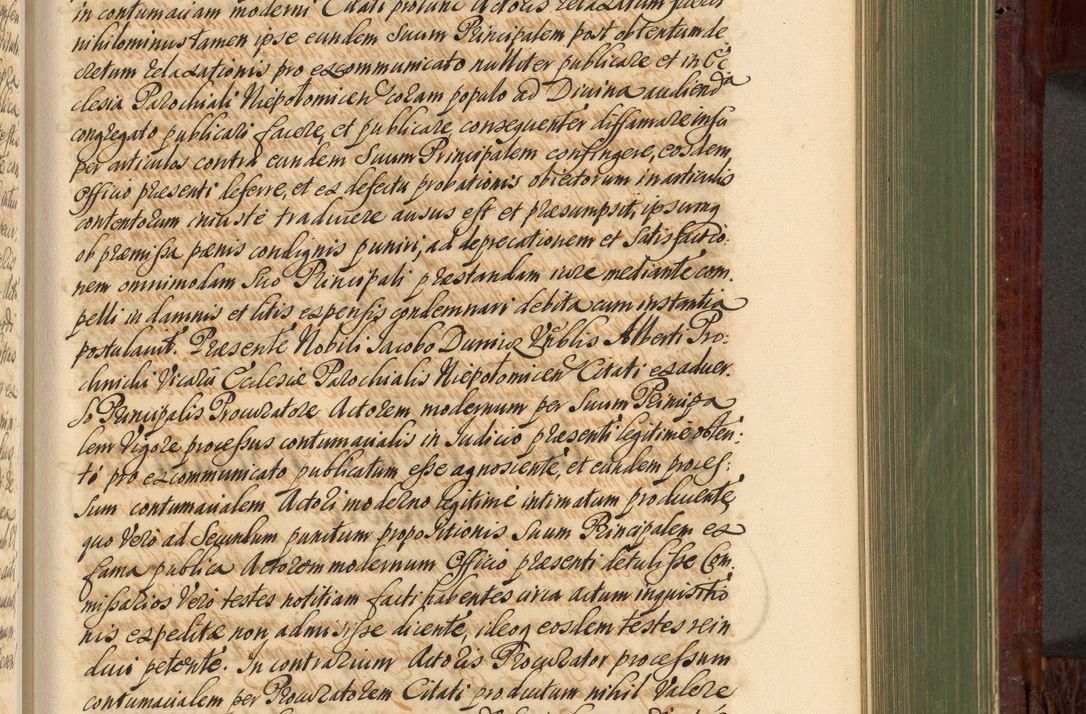 in contumaciam moderni Citati prolati Actoris relaxatum fuerit
nihilominus tamen ipse eundem Suum Principalem post obtentum de
cretum relaxationis pro excommunicato nulliter publicare et in Ec
clesia Parochiali Niepołomicen coram populo ad Divina audienda
congregato publicari facere, et publicare consequenter diffamare insu
per articulos contra eundem Suum Principalem confingere, eosdem
Officio præsenti deferre, et ex defectu probationis obiectorum in articulis
contentorum iniuste traducere ausus est et præsumpsit, ipsumq
ob præmissa pænis condignis puniri, ad deprecationem et Satisfactio:
nem omnimodam Suo Principali præstandam iure mediante com
pelli in damnis et litis expensis condemnari debita cum instantia
postulavit. Præsente Nobili Jacobo Dunir Vblis Alberti Pro:
chnicki Vicarii Ecclesiæ Parochialis Niepołomicen Citati ex adver
so Principalis Procuratore Actorem modernum per Suum Principa
lem Vigore processus contumacialis in Judicio præsenti legitime obten:
ti pro excommunicato publicatum esse agnoscente, et eundem proces:
sum contumacialem Actori moderno legitime intimatum producente,
quo vero ad Secundum punctum propositionis Suum Principalem ex
fama publica Actorem modernum Officio præsenti detulisse Com
missarios vero testes notitiam facti habentes circa actum inquisitio
nis expeditæ non admisisse dicente, ideoq eosdem testes rein
duci petente. In contrarium Actoris Procurator processum
contumacialem per Procuratorem Citati productum nihil Valere